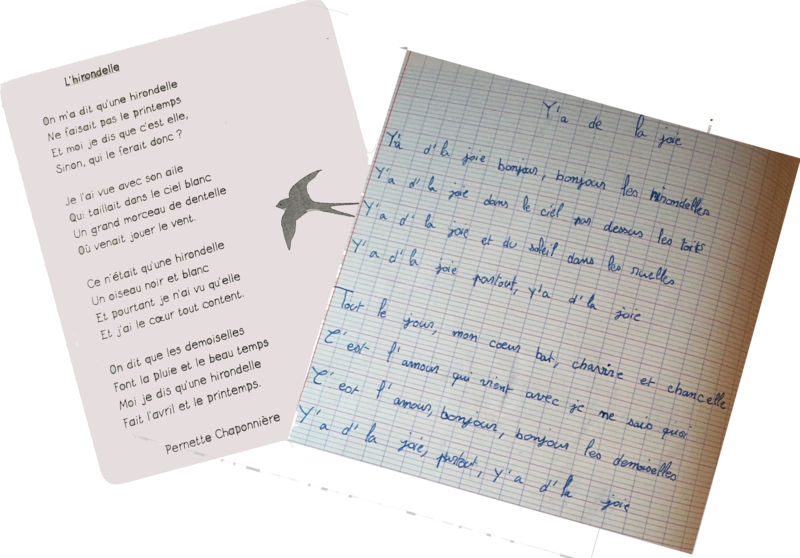 L'hirondelle
On m'a dit qu'une hirondelle
Ne faisait pas le printemps
Et moi je dis que c'est elle,
Sinon, qui le ferait donc ?
Je l'ai vue avec son aile
Qui taillait dans le ciel blanc
Un grand morceau de dentelle
Où venait jouer le vent.
Ce n'était qu'une hirondelle
Un oiseau noir et blanc
Et pourtant je n'ai vu qu'elle
Et j'ai le cœur tout content.
On dit que les demoiselles
Font la pluie et le beau temps
Moi je dis qu'une hirondelle
Fait l'avril et le printemps.
Pernette Chaponnière
Y'a de la joie
Y'a d'la joie bonjour, bonjour les hirondelles
Y'a d'la joie dans le ciel par dessus les toits
Y'a d'la joie et du soleil dans les ruelles
Y'a d'la joie partout, y'a d'la joie
Tout le jour, mon coeur bat, chavire et chancelle
C'est l'amour qui vient avec je ne sais quoi
C'est l'amour, bonjour, bonjour les demoiselles
Y'a d'la joie, partout, y'a d'la joie